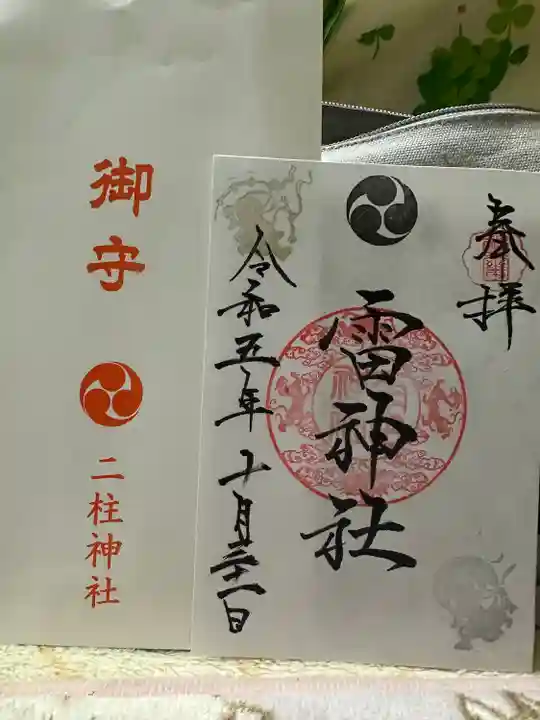 御守
二柱神社
奉拝
雷神社
令和五年十月二十一日